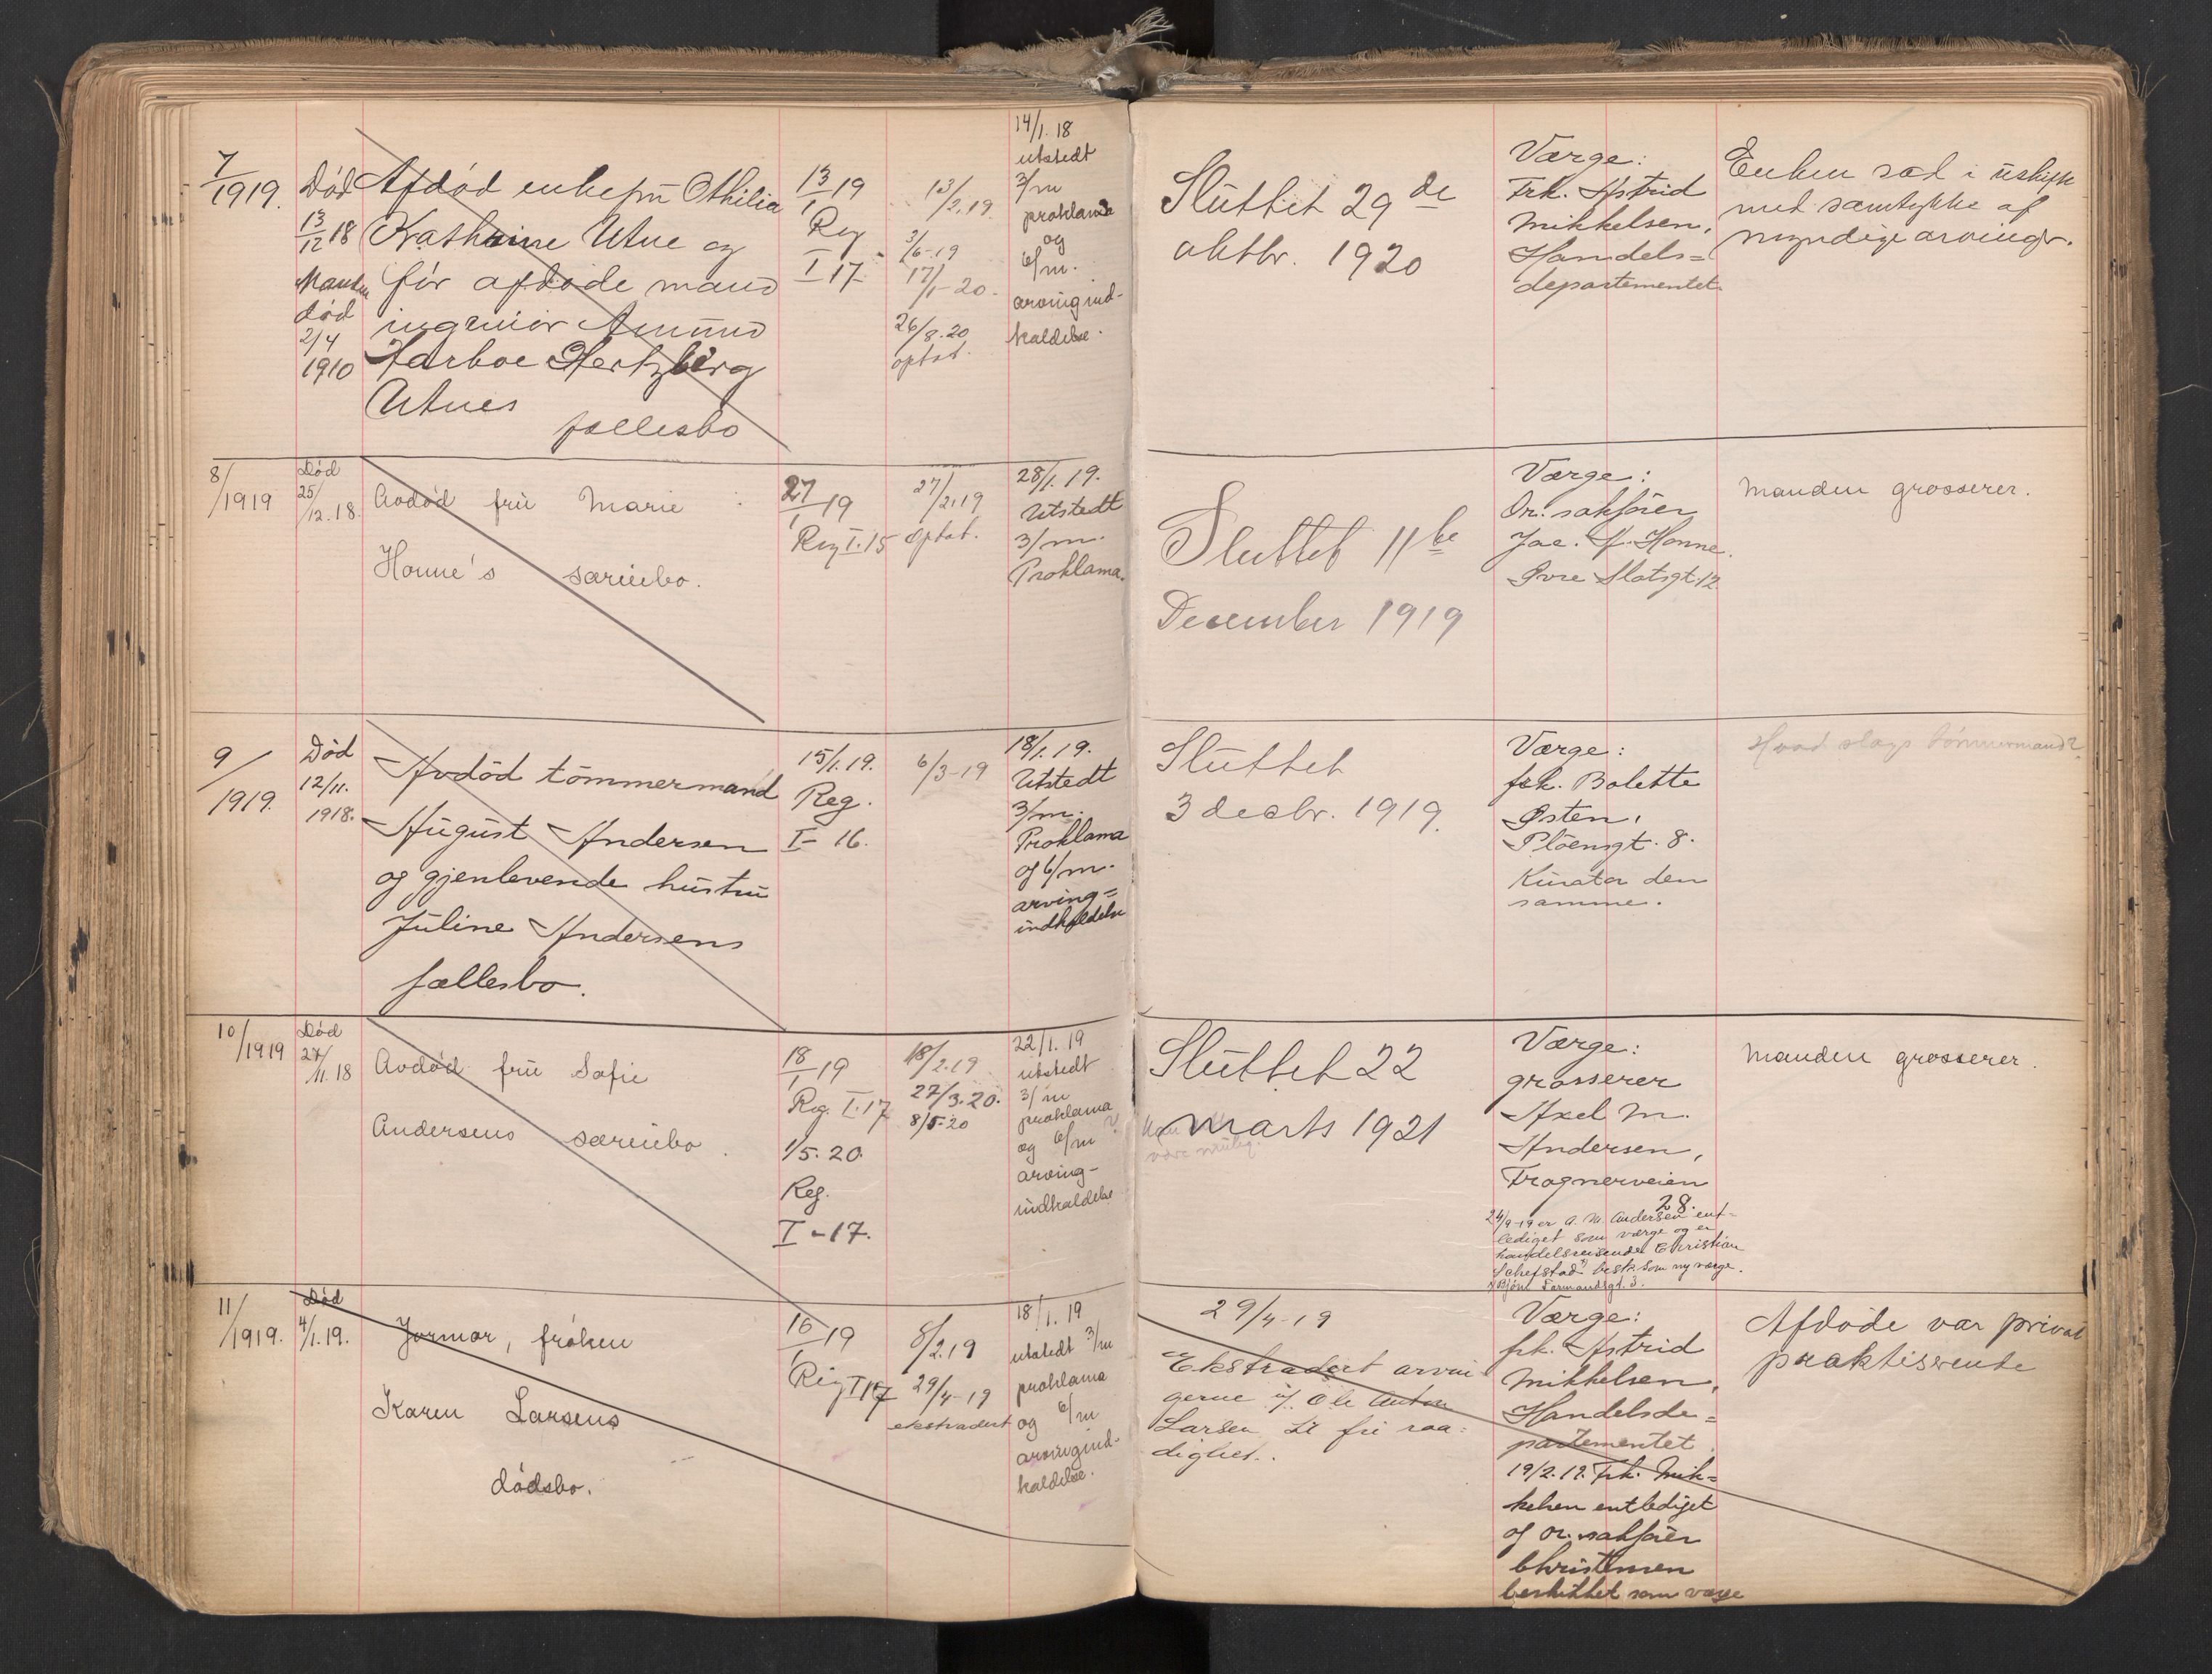 7/1919.
Död
13/12 18
Manden
död
2/4
1910
Afdöd enkefru Othilia
Kathrine Utne og
før afdöde mand
ingeniör Amund
Harboe Hertzberg
Utnes
fællesbo
13/1 19
Reg
I 17.
13/2.19.
3/6-19
17/1-20.
26/8.20
optat.
14/1.18
utstedt
3/m
proklama
og
6/m.
arvingind-
kaldelse.
Sluttet 29de
oktbr. 1920
Værge:
Frk. Astrid
Mikkelsen,
Handels=
departementet.
Enken sad i uskifte
med samtykke af
myndige arvinger.
8/1919
Död
25/12.18.
Avdöd frü Marie
Honne's særübo.
27/1 19
Reg I.15
27/2.19
optat.
28/1.19.
Utstedt
3/m.
Proklama.
Sluttet 11te
December 1919
Værge:
Or. sakförer
Jac. A. Honne.
Øvre Slotsgt. 12.
Manden grosserer.
9/1919.
Död
12/11.
1918.
Avdöd tömmermand
August Andersen
og gjenlevende hustru
Juline Andersens
fællesbo.
15/1.19.
Reg.
I- 16.
6/3-19
18/1.19.
Utstedt
3/m.
Proklama
og 6/m.
arving=
indkaldelse
Sluttet
3 decbr. 1919.
Værge:
frk. Bolette
Østen,
Plöensgt. 8.
Kurator den
samme.
Hvad slags tömmermand?
10/1919
Död
27/11.18
Avdöd frü Sofie
Andersens særübo.
18/1 19
Reg. I.17
1/5.20.
Reg.
I-17.
18/2.19
27/3.20.
8/5-20
22/1.19
utstedt
3/m
proklama
og 6/m ?
arving-
indkaldelse
Sluttet 22
marts 1921
Værge:
grosserer
Axel M.
Andersen,
Frognerveien
28.
24/9-19 er A. M. Andersen ent-
lediget som værge og er
handelsreisende Christian
Schefstad besk. som ny værge.
Bjørn Farmandsgt. 3.
Manden grosserer.
11/1919.
Död
4/1.19.
Jormor, fröken
Karen Larsens
dödsbo.
16/1 19
Reg I 17
8/2.19
29/4-19
ekstradert
18/1.19
utstedt 3/m
proklama
og 6/m
arvingind-
kaldelse.
29/4-19
Ekstradert arvin
gerne v/ Ole Anton
Larsen til fri raa=
dighet.
Værge:
frk. Astrid
Mikkelsen,
Handelsde=
partementet.
19/2.19. Frk. Mik=
kelsen entlediget
og or. sakförer
Christensen
beskikket som værge
Afdöde var privat
praktiserende